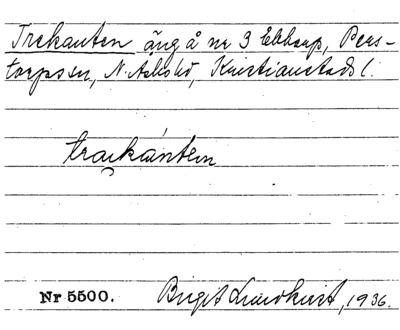 Trekanten äng å nr 3 Ebbarp, Pers-
torps sn, N. Åsbo hd, Kristianstads l.
traikánten
Nr 5500. Birgit Lundkvist, 1936.